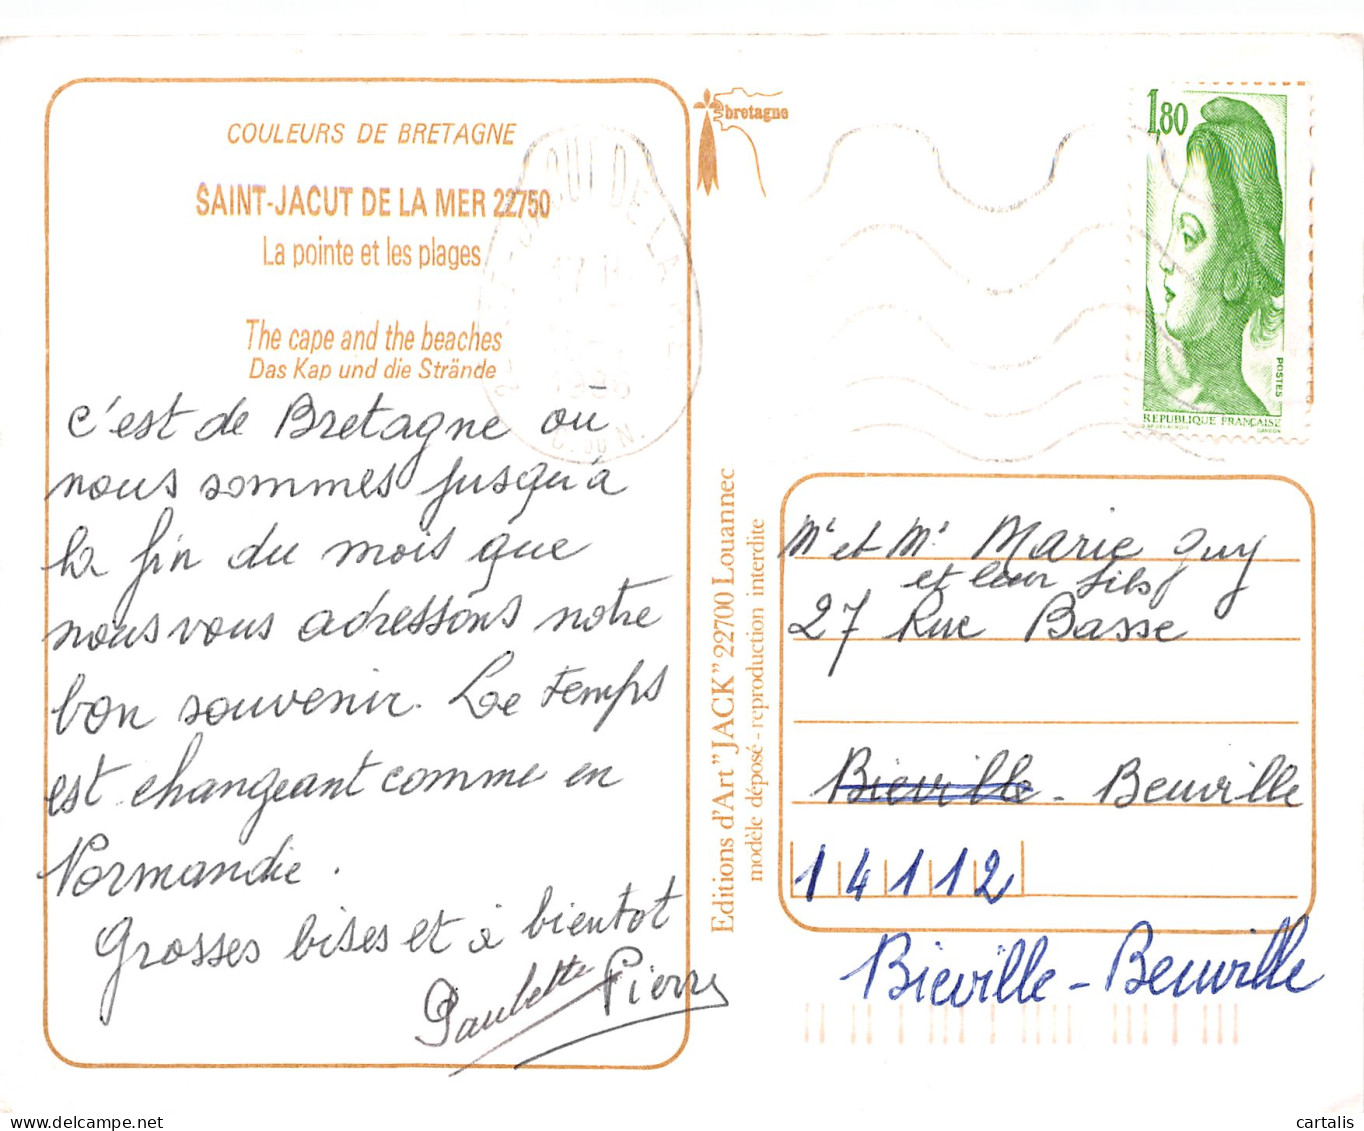 COULEURS DE BRETAGNE
SAINT-JACUT DE LA MER 22750
La pointe et les plages
The cape and the beaches
Das Kap und die Strände
c'est de Bretagne ou
nous sommes jusqu'à
la fin du mois que
nous vous adressons notre
bon souvenir. Le temps
est changeant comme en
Normandie.
Grosses bises et à bientot
Paulette Pierre
bretagne
1,80
POSTES
REPUBLIQUE FRANÇAISE
GANDON
DE LA
Editions d'Art "JACK" 22700 Louannec
modèle déposé - reproduction interdite
Mr et Me Marie Guy
et leur fils
27 Rue Basse
Bieville - Beuville
14112
Bieville - Beuville
cartalis